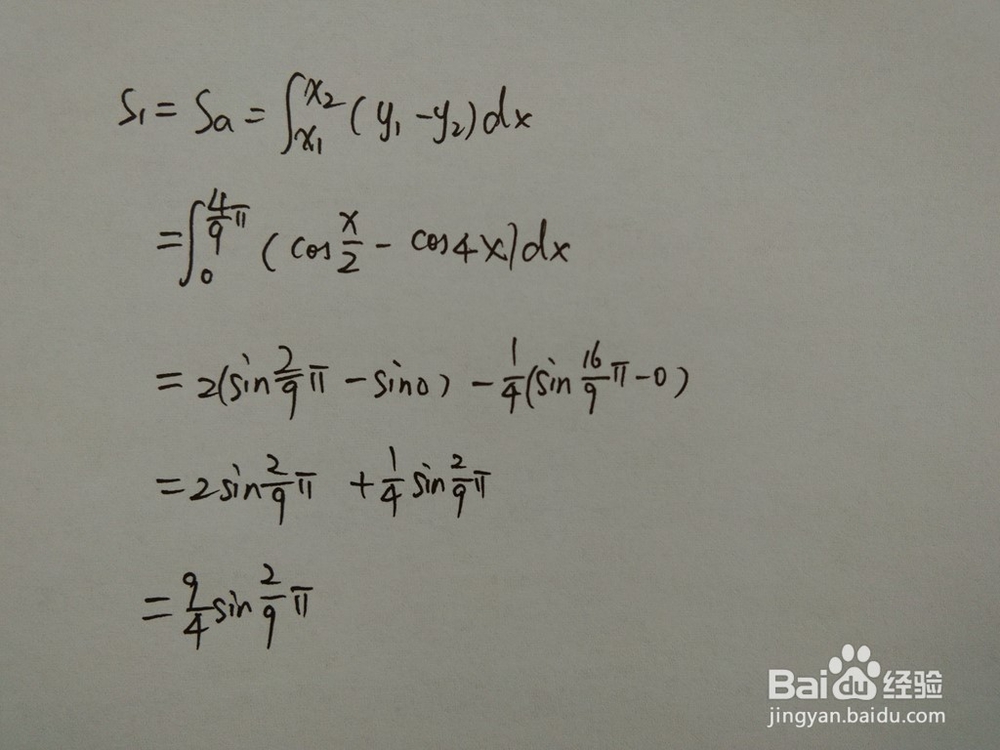 S₁ = Sa = ∫_{x₁}^{x₂} (y₁ - y₂)dx
= ∫_{0}^{\frac{4}{9}π} (cos\frac{x}{2} - cos4x)dx
= 2(sin\frac{2}{9}π - sin0) - \frac{1}{4}(sin\frac{16}{9}π - 0)
= 2sin\frac{2}{9}π + \frac{1}{4}sin\frac{2}{9}π
= \frac{9}{4}sin\frac{2}{9}π
Baidu经验
jingyan.baidu.com